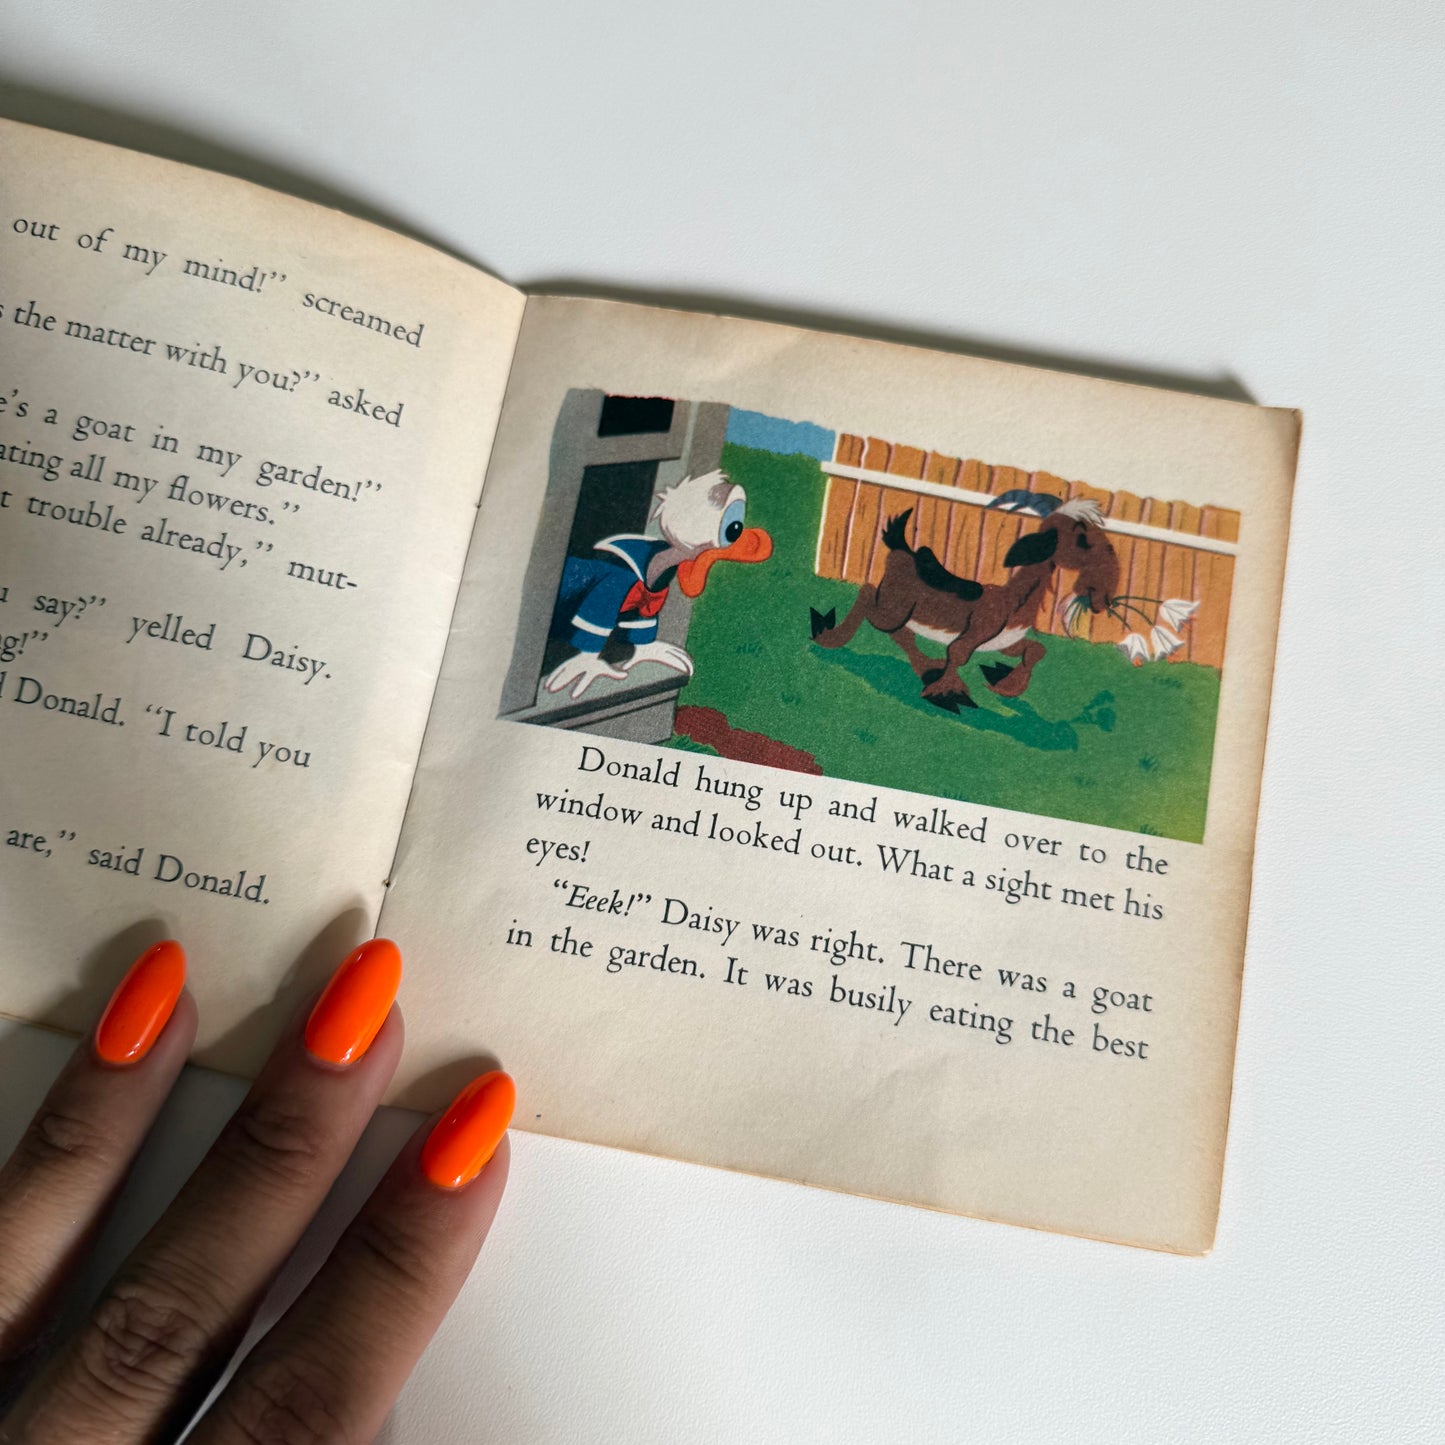 out of my mind!” screamed
the matter with you?” asked
a goat in my garden!”
all my flowers.”
trouble already,” mut-
say?” yelled Daisy.
Donald. “I told you
are,” said Donald.
Donald hung up and walked over to the
window and looked out. What a sight met his
eyes!
“Eeek!” Daisy was right. There was a goat
in the garden. It was busily eating the best